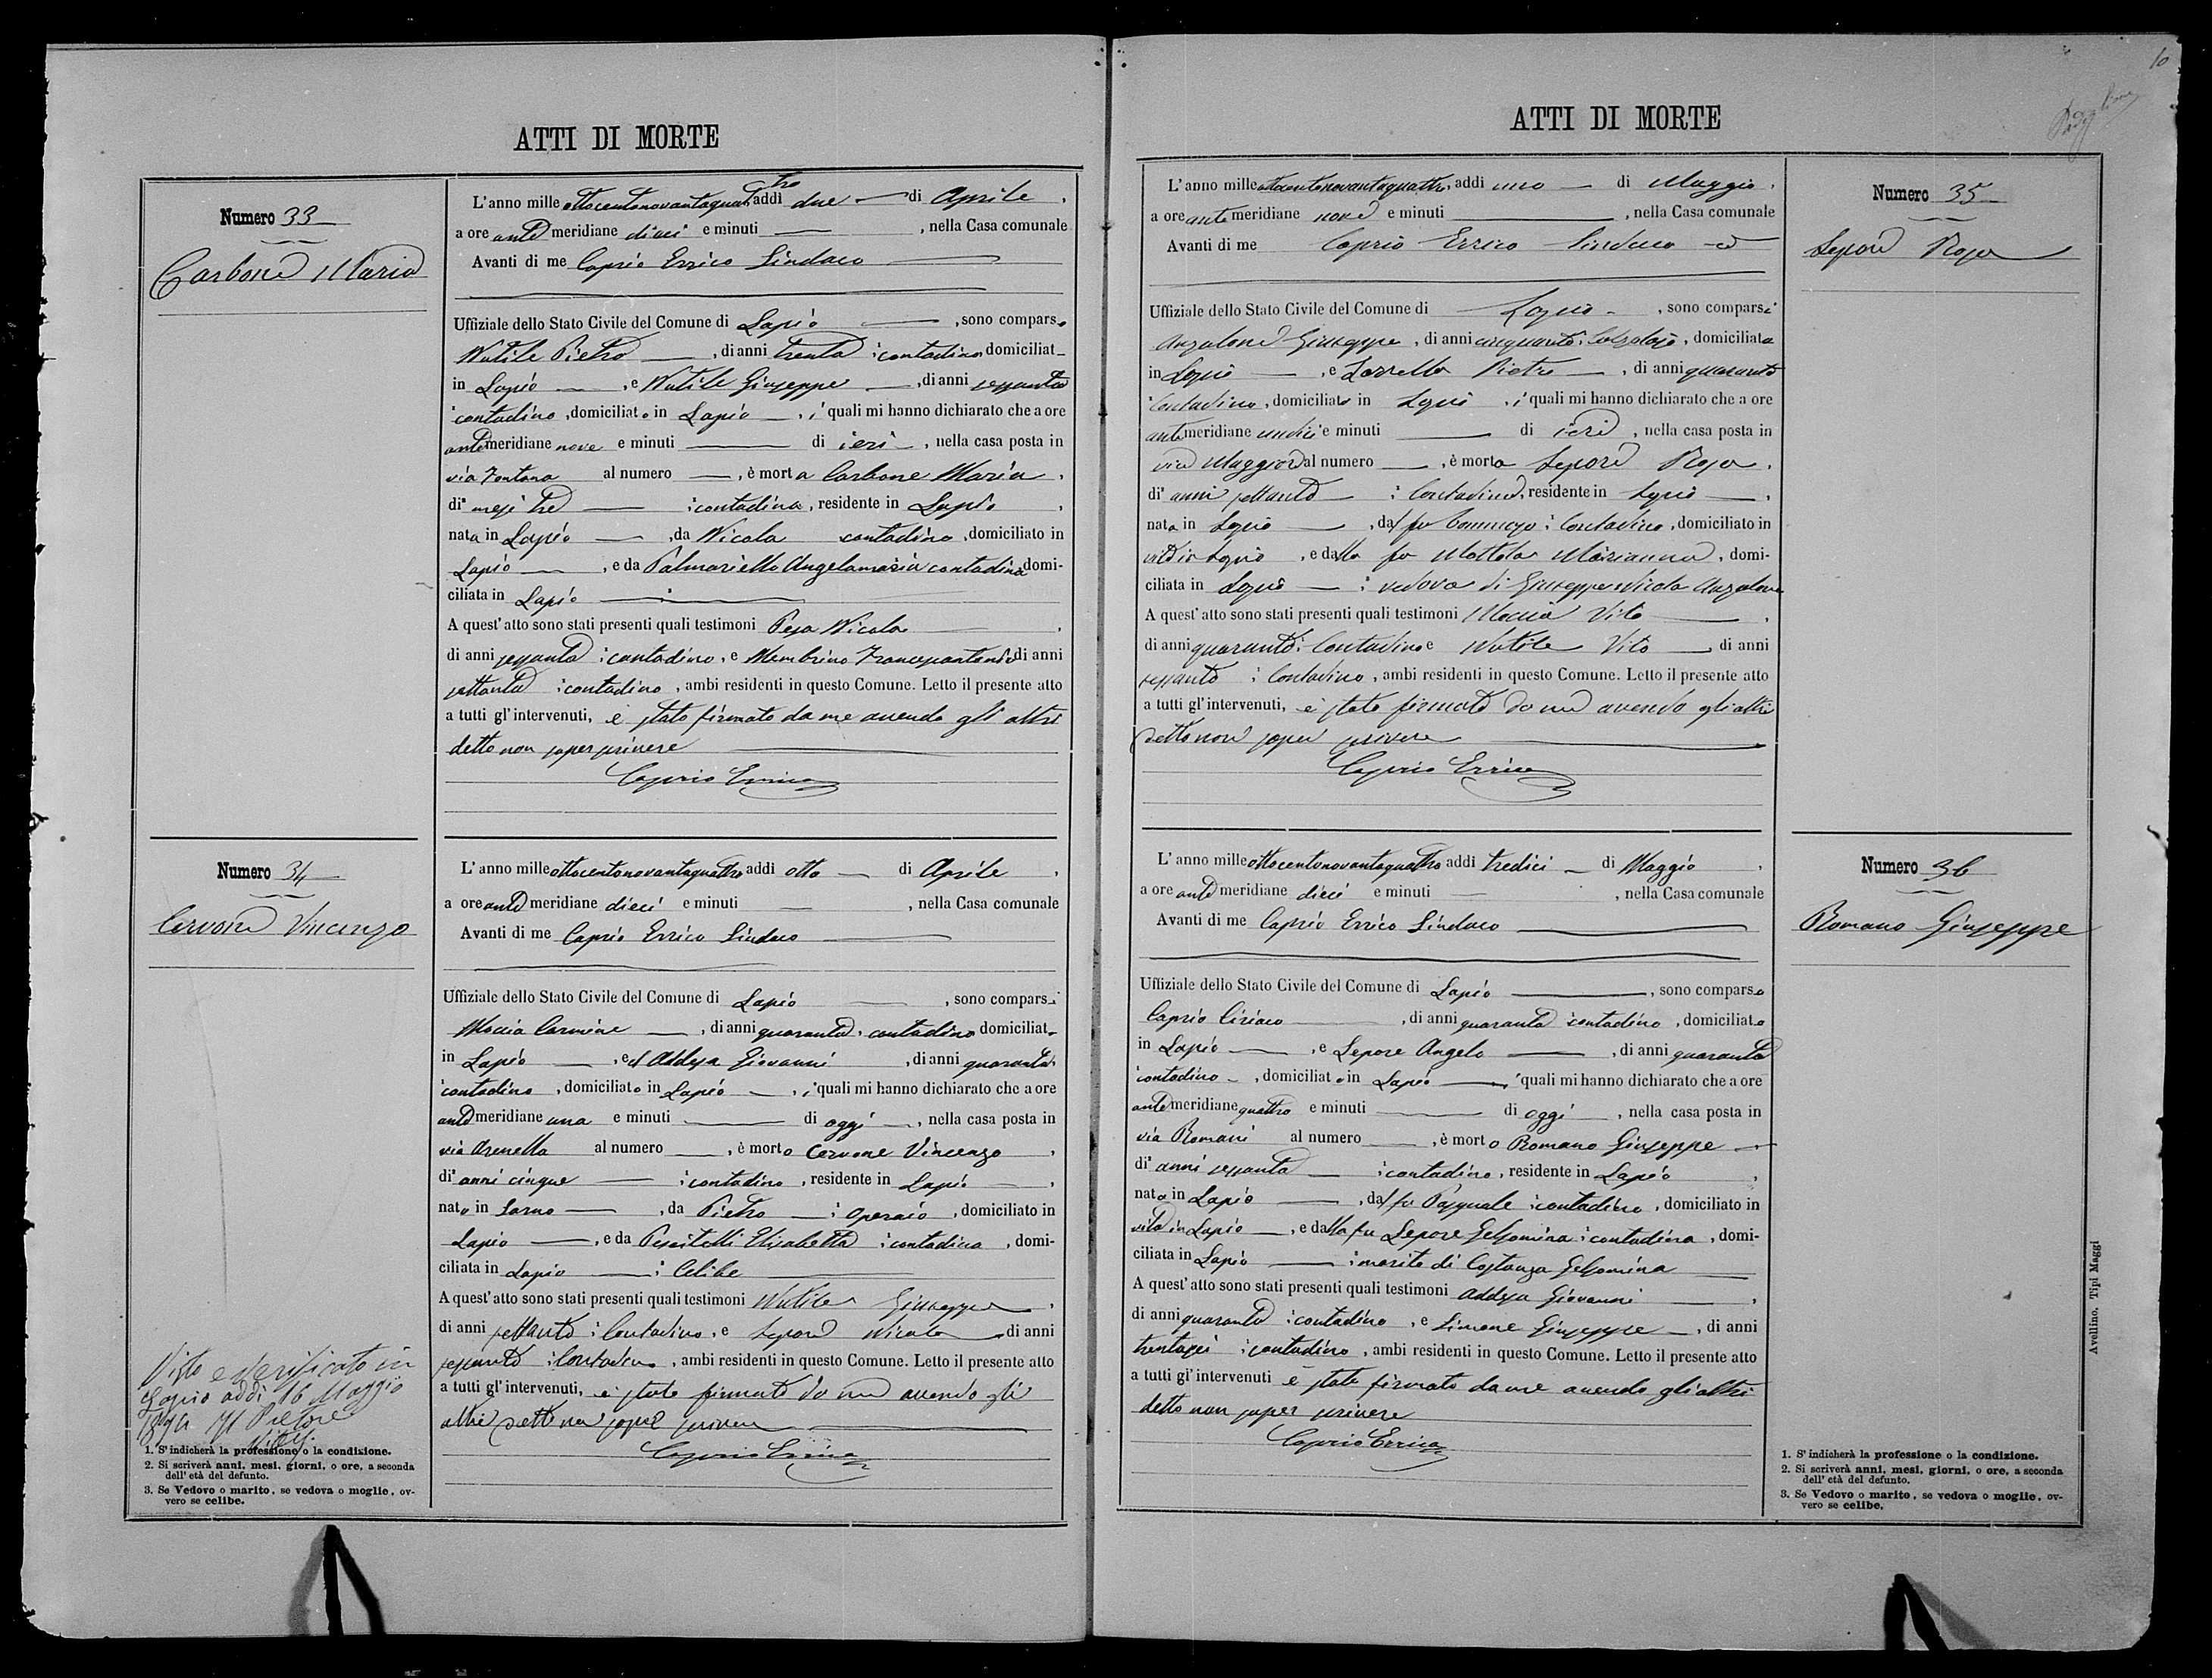 ATTI DI MORTE
Numero 33
Carbone Maria
L'anno mille ottocentonovantaquattro addì due di Aprile,
a ore ante meridiane dieci e minuti , nella Casa comunale
Avanti di me Caprio Errico Sindaco
Uffiziale dello Stato Civile del Comune di Lapio , sono comparso
Nutile Pietro , di anni trenta contadino domiciliat
in Lapio , e Nutile Giuseppe , di anni sessanta
contadino , domiciliato in Lapio , i quali mi hanno dichiarato che a ore
ante meridiane nove e minuti di ieri , nella casa posta in
via Fontana al numero , è morta Carbone Maria ,
di mesi tre contadina , residente in Lapio ,
nata in Lapio , da Nicola contadino , domiciliato in
Lapio , e da Palmariello Angelamaria contadina domi-
ciliata in Lapio
A quest'atto sono stati presenti quali testimoni Pesa Nicola ,
di anni sessanta contadino , e Membrino Francescantonio di anni
settanta contadino , ambi residenti in questo Comune. Letto il presente atto
a tutti gl'intervenuti, è stato firmato da me avendo gli altri
detto non saper scrivere
Caprio Errico
Numero 34
Cervone Vincenzo
L'anno mille ottocentonovantaquattro addì otto di Aprile ,
a ore ante meridiane dieci e minuti , nella Casa comunale
Avanti di me Caprio Errico Sindaco
Uffiziale dello Stato Civile del Comune di Lapio , sono comparsi
Moccia Carmine , di anni quaranta contadino domiciliato
in Lapio , ed Addesa Giovanni , di anni quaranta
contadino , domiciliato in Lapio , i quali mi hanno dichiarato che a ore
ante meridiane una e minuti di oggi , nella casa posta in
via Arenella al numero , è morto Cervone Vincenzo ,
di anni cinque contadino , residente in Lapio ,
nato in Sarno , da Pietro operaio , domiciliato in
Lapio , e da Pescitelli Elisabetta contadina , domi-
ciliata in Lapio : Celibe
A quest'atto sono stati presenti quali testimoni Nutile Giuseppe ,
di anni settanta contadino , e Lepore Nicola di anni
sessanta contadino , ambi residenti in questo Comune. Letto il presente atto
a tutti gl'intervenuti, è stato firmato da me avendo gli
altri detto non saper scrivere
Caprio Errico
Visto e verificato in
Lapio addì 16 Maggio
1894 Il Pretore
1. S'indicherà la professione o la condizione.
2. Si scriverà anni, mesi, giorni, o ore, a seconda
dell'età del defunto.
3. Se Vedovo o marito, se vedova o moglie, ov-
vero se celibe.
10
ATTI DI MORTE
Numero 35
Lepore Rosa
L'anno mille ottocentonovantaquattro, addì uno di Maggio ,
a ore ante meridiane nove e minuti , nella Casa comunale
Avanti di me Caprio Errico Sindaco
Uffiziale dello Stato Civile del Comune di Lapio , sono comparsi
Anzalone Giuseppe , di anni cinquanta Calzolajo , domiciliato
in Lapio , e Zarrella Pietro , di anni quaranta
Contadino , domiciliato in Lapio , i quali mi hanno dichiarato che a ore
ante meridiane undici e minuti di ieri , nella casa posta in
via Maggiore al numero , è morta Lepore Rosa ,
di anni settanta Contadina , residente in Lapio ,
nata in Lapio , dal fu Contadino , domiciliato in
vita in Lapio , e dalla fu Mottola Marianna , domi-
ciliata in Lapio : vedova di Giuseppe Nicola Anzalone
A quest'atto sono stati presenti quali testimoni Moccia Vito ,
di anni quaranta Contadino e Nutile Vito di anni
sessanta Contadino , ambi residenti in questo Comune. Letto il presente atto
a tutti gl'intervenuti, è stato firmato da me avendo gli altri
detto non saper scrivere
Caprio Errico
Numero 36
Romano Giuseppe
L'anno mille ottocentonovantaquattro addì tredici di Maggio ,
a ore ante meridiane dieci e minuti , nella Casa comunale
Avanti di me Caprio Errico Sindaco
Uffiziale dello Stato Civile del Comune di Lapio , sono comparso
Caprio Ciriaco , di anni quaranta contadino , domiciliato
in Lapio , e Lepore Angelo , di anni quaranta
contadino , domiciliato in Lapio i quali mi hanno dichiarato che a ore
ante meridiane quattro e minuti di oggi , nella casa posta in
via Romani al numero , è morto Romano Giuseppe
di anni sessanta contadino , residente in Lapio ,
nato in Lapio , dal fu Pasquale contadino , domiciliato in
vita in Lapio , e dalla fu Lepore Gelsomina contadina , domi-
ciliata in Lapio : marito di Costanza Gelsomina
A quest'atto sono stati presenti quali testimoni Addesa Giovanni ,
di anni quaranta contadino , e Simone Giuseppe , di anni
trentasei contadino , ambi residenti in questo Comune. Letto il presente atto
a tutti gl'intervenuti è stato firmato da me avendo gli altri
detto non saper scrivere
Caprio Errico
1. S'indicherà la professione o la condizione.
2. Si scriverà anni, mesi, giorni, o ore, a seconda
dell'età del defunto.
3. Se Vedovo o marito, se vedova o moglie, ov-
vero se celibe.
Avellino, Tipi Maggi